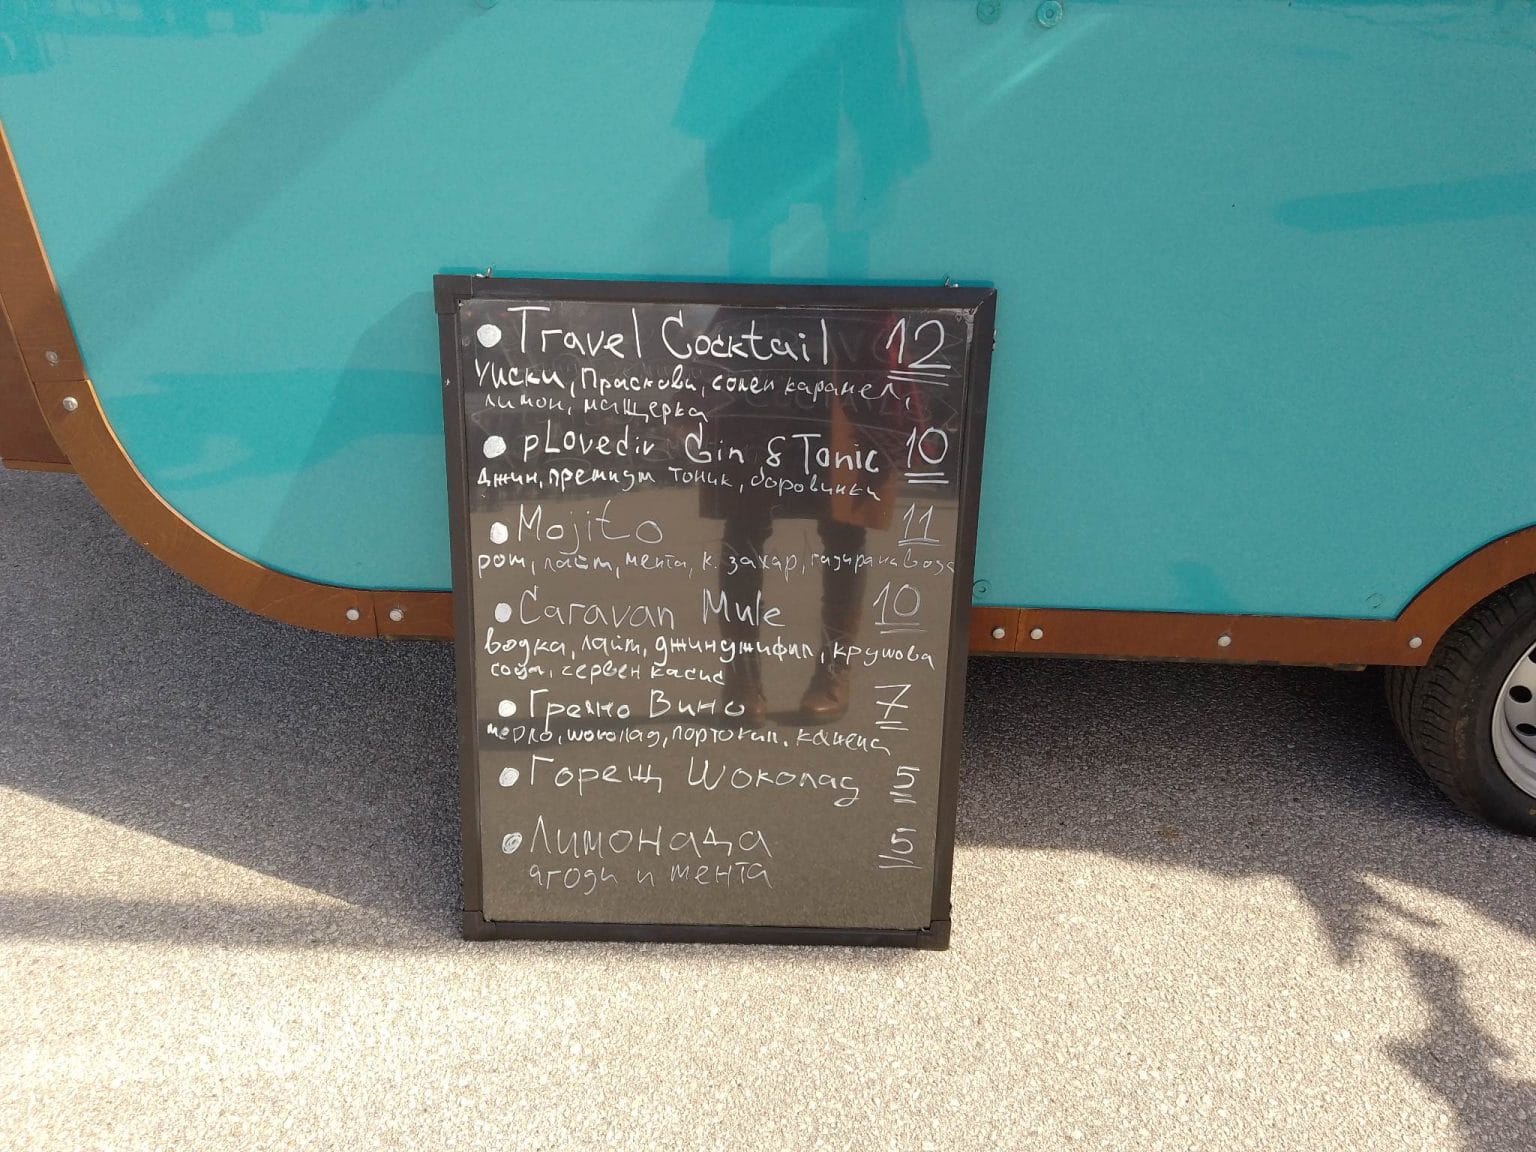 • Travel Cocktail 12
Уиски, Праскови, солен карамел,
лимон, мащерка
• pLovediv Gin & Tonic 10
Джин, премиум тоник, боровинки
• Mojito 11
ром, лайм, мента, к. захар, газирана вода
• Caravan Mule 10
водка, лайм, джинджифил, крушова
сода, червен касис
• Греяно Вино 7
мерло, шоколад, портокал, канела
• Горещ Шоколад 5
• Лимонада 5
ягоди и мента